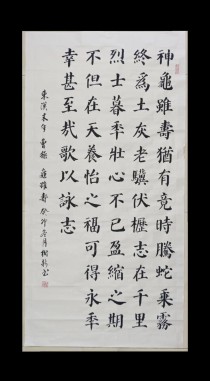 神龜雖壽猶有竟時騰蛇乘霧
終為土灰老驥伏櫪志在千里
烈士暮秊壯心不已盈縮之期
不但在天養怡之福可得永秊
幸甚至哉歌以詠志
東漢末年曹操龜雖壽癸卯冬月書